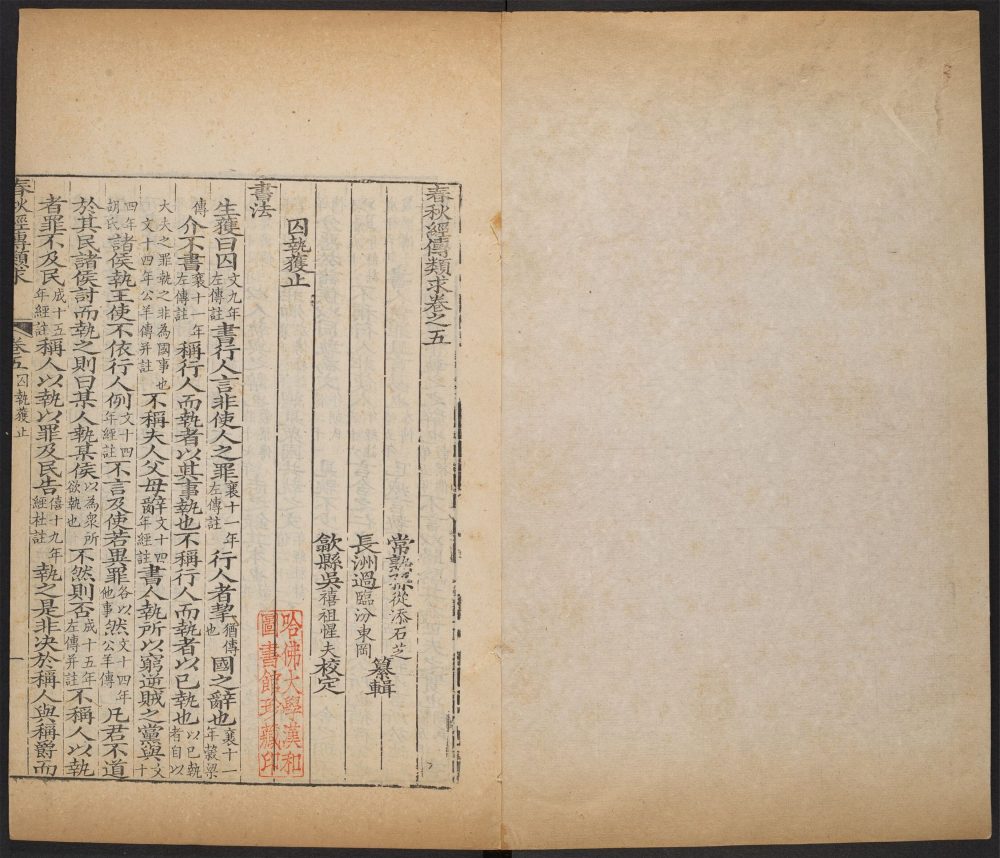 春秋經傳類求卷之五
常熟孫從添石芝
長洲過臨汾東岡纂輯
歙縣吳禧祖惺夫校定
囚執獲止
哈佛大學漢和圖書館珍藏印
書法
生獲曰囚文九年左傳註書行人言非使人之罪襄十一年左傳註行人者挈猶傳也國之辭也襄十一年穀梁
傳介不書襄十一年左傳註稱行人而執者以其事執也不稱行人而執者以已執也以已執者自以
大夫之罪執之非為國事也文十四年公羊傳并註不稱夫人父母辭文十四年經註書人執所以窮逆賊之黨與文十
四年胡氏諸侯執王使不依行人例文十四年經註不言及使若異罪各以他事然文十四年公羊傳凡君不道
於其民諸侯討而執之則曰某人執某侯以為衆所欲執也不然則否成十五年左傳并註不稱人以執
者罪不及民成十五年經註稱人以執以罪及民告僖十九年經杜註執之是非决於稱人與稱爵而
春秋經傳類求 卷五 囚執獲止